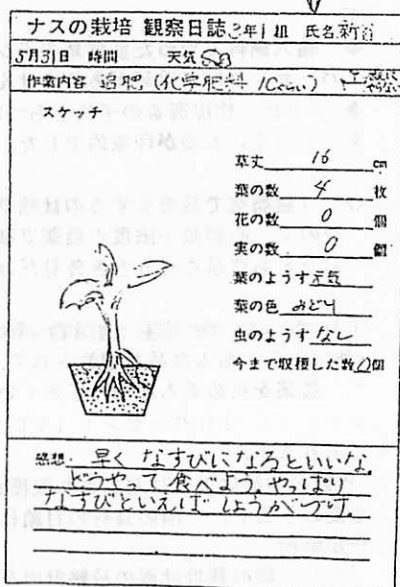 ナスの栽培 観察日誌 3年1組 氏名
5月31日 時間 天気
作業内容 追肥(化学肥料 10gぐらい)
スケッチ
草丈 16 cm
葉の数 4 枚
花の数 0 個
実の数 0 個
葉のようす 元気
葉の色 みどり
虫のようす なし
今まで収穫した数 0 個
感想 早く なすびになろといいな
どうやって食べよう。やっぱり
なすびといえば しょうがづけ。